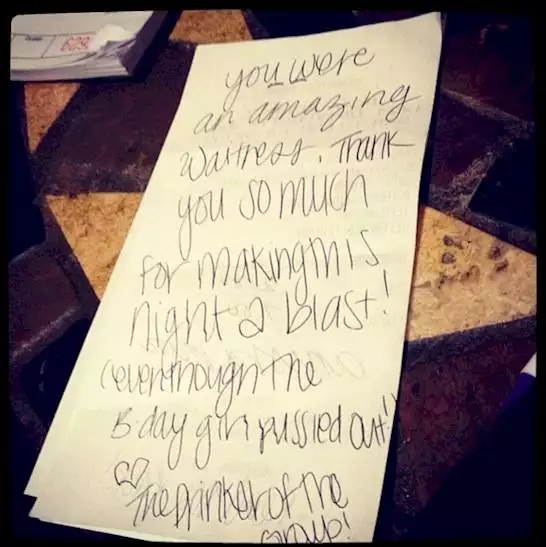 you were
an amazing
waitress. Thank
you so much
for making this
night a blast!
(even though the
B-day girl pussied out!)
♡
The Drinker of the
group!